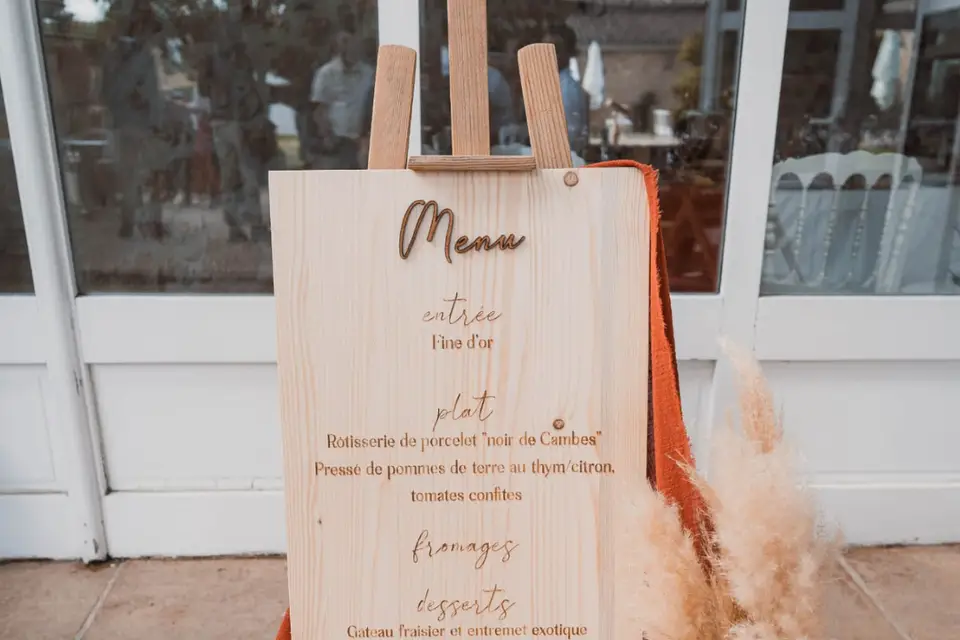 Menu
entrée
Fine d'or
plat
Rôtisserie de porcelet "noir de Cambes"
Pressé de pommes de terre au thym/citron,
tomates confites
fromages
desserts
Gateau fraisier et entremet exotique